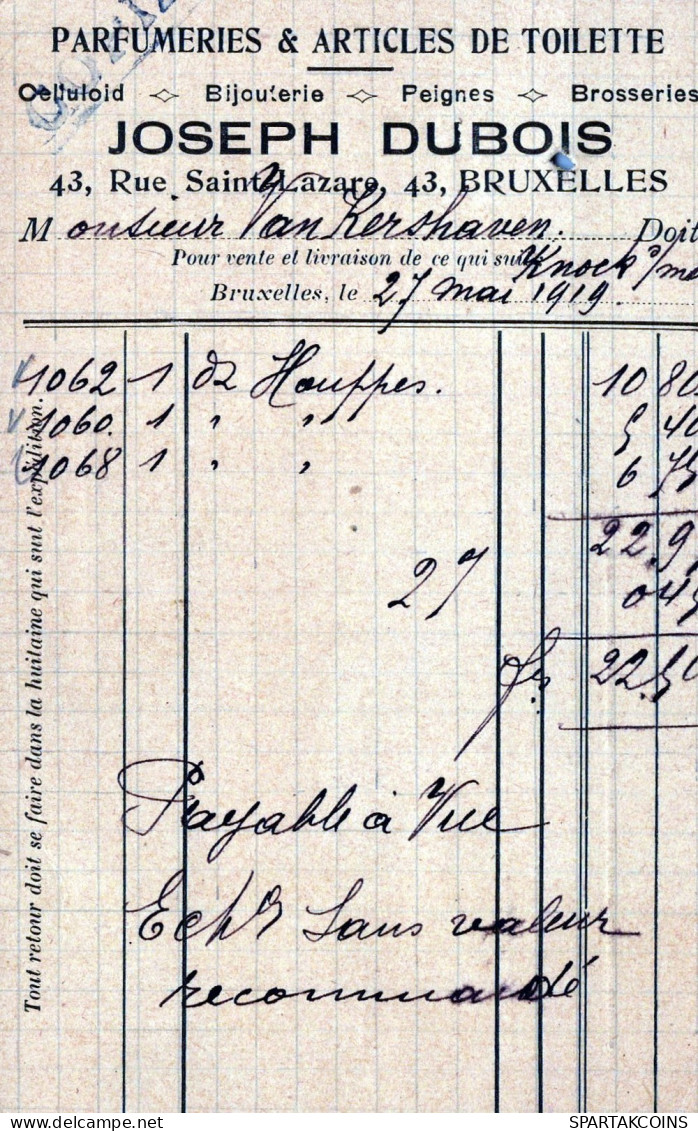 PARFUMERIES & ARTICLES DE TOILETTE
Celluloid Bijouterie Peignes Brosseries
JOSEPH DUBOIS
43, Rue Saint-Lazare, 43, BRUXELLES
Monsieur Van Kershaven. Doit
Pour vente et livraison de ce qui suit
Knock s/me
Bruxelles, le 27 mai 1919.
1062 1 dz Houppes. 10 80
1060. 1 " " 5 40
1068 1 " " 6 75
22.9
27 045
fr: 22.50
Payable à Vue
Echr sans valeur
recommandé
Tout retour doit se faire dans la huitaine qui suit l'expédition.
DELCAMPE.NET
SPARTAKCOINS